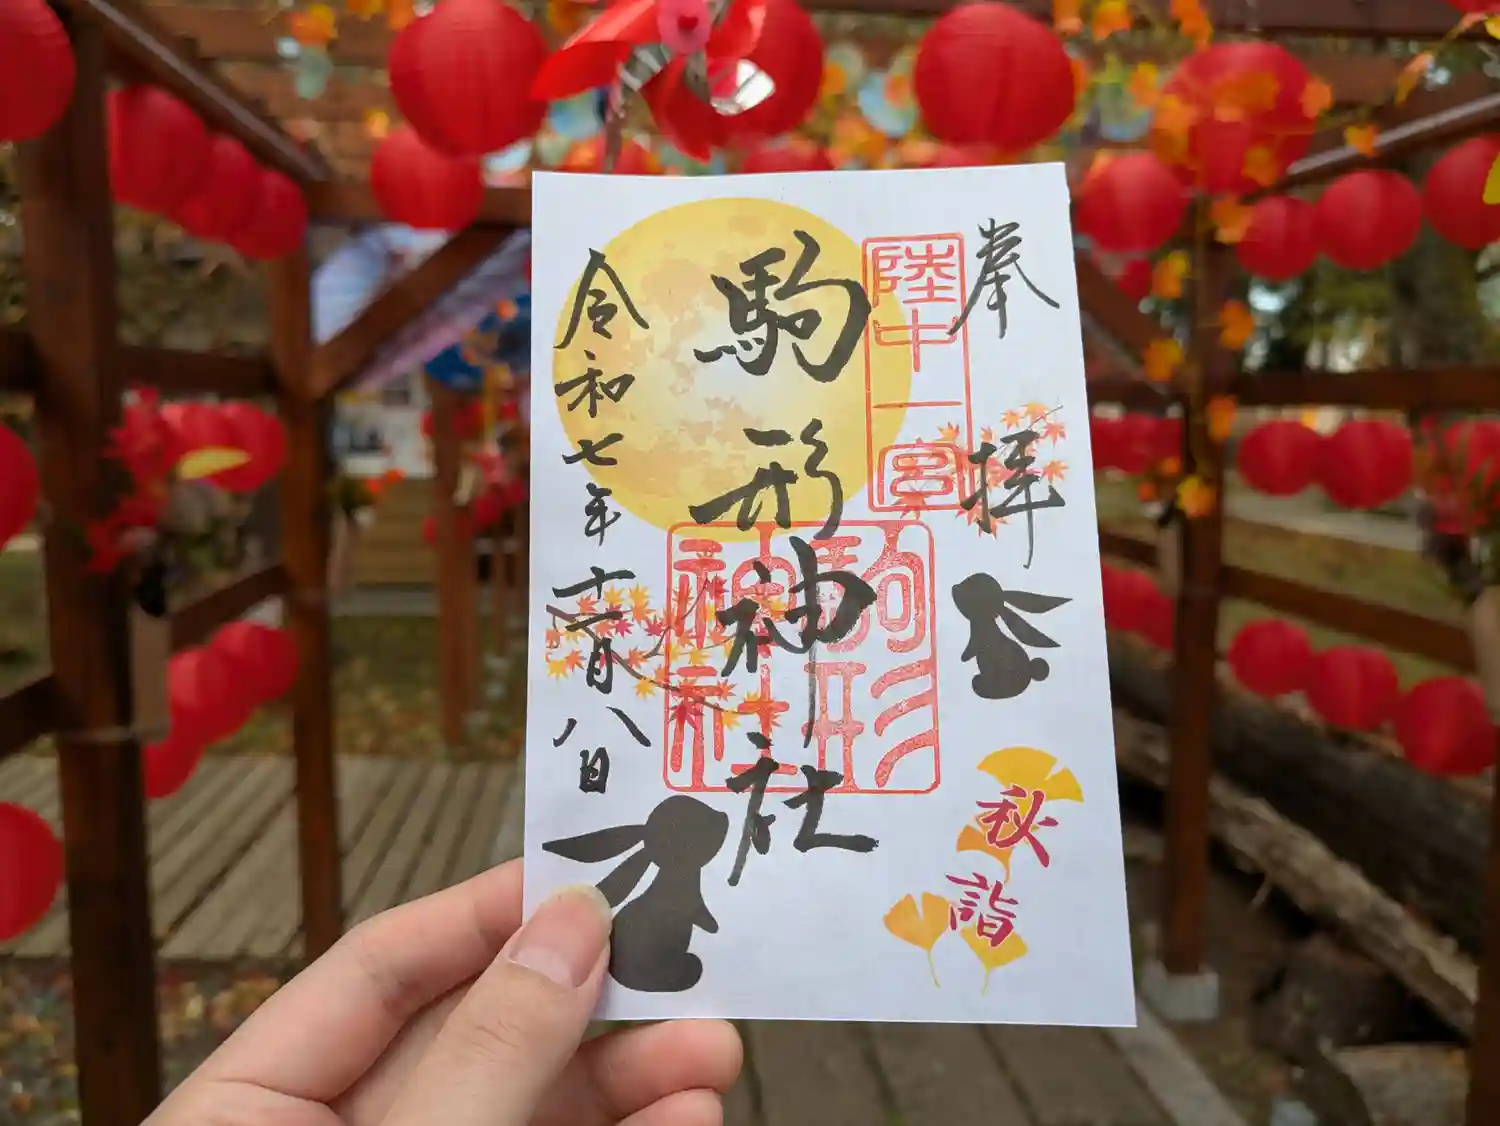 奉拝
陸中一宮
駒形神社
駒形神社
令和七年十一月八日
秋詣